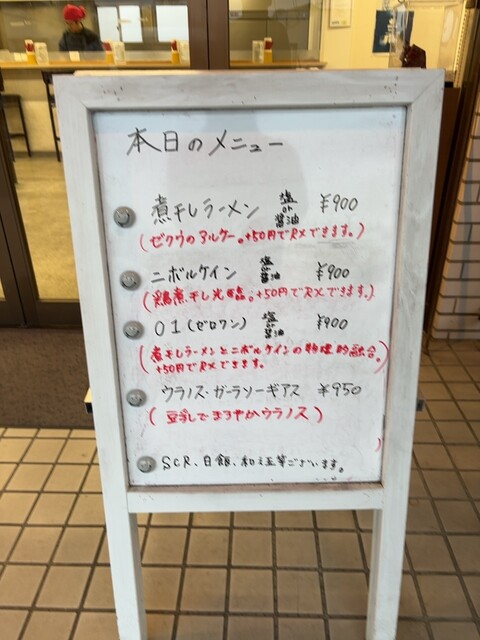 本日のメニュー
煮干しラーメン 塩or醤油 ¥900
(ゼクウのアルケー。+50円でRXできます。)
ニボルケイン 塩or醤油 ¥900
(鶏煮干し光臨。+50円でRXできます。)
01(ゼロワン) 塩or醤油 ¥900
(煮干しラーメンとニボルケインの物理的融合。
+50円でRXできます。
ウラノス・ガーラソーギアス ¥950
(豆乳でまろやかウラノス)
)
SCR、白飯、和え玉等ございます。